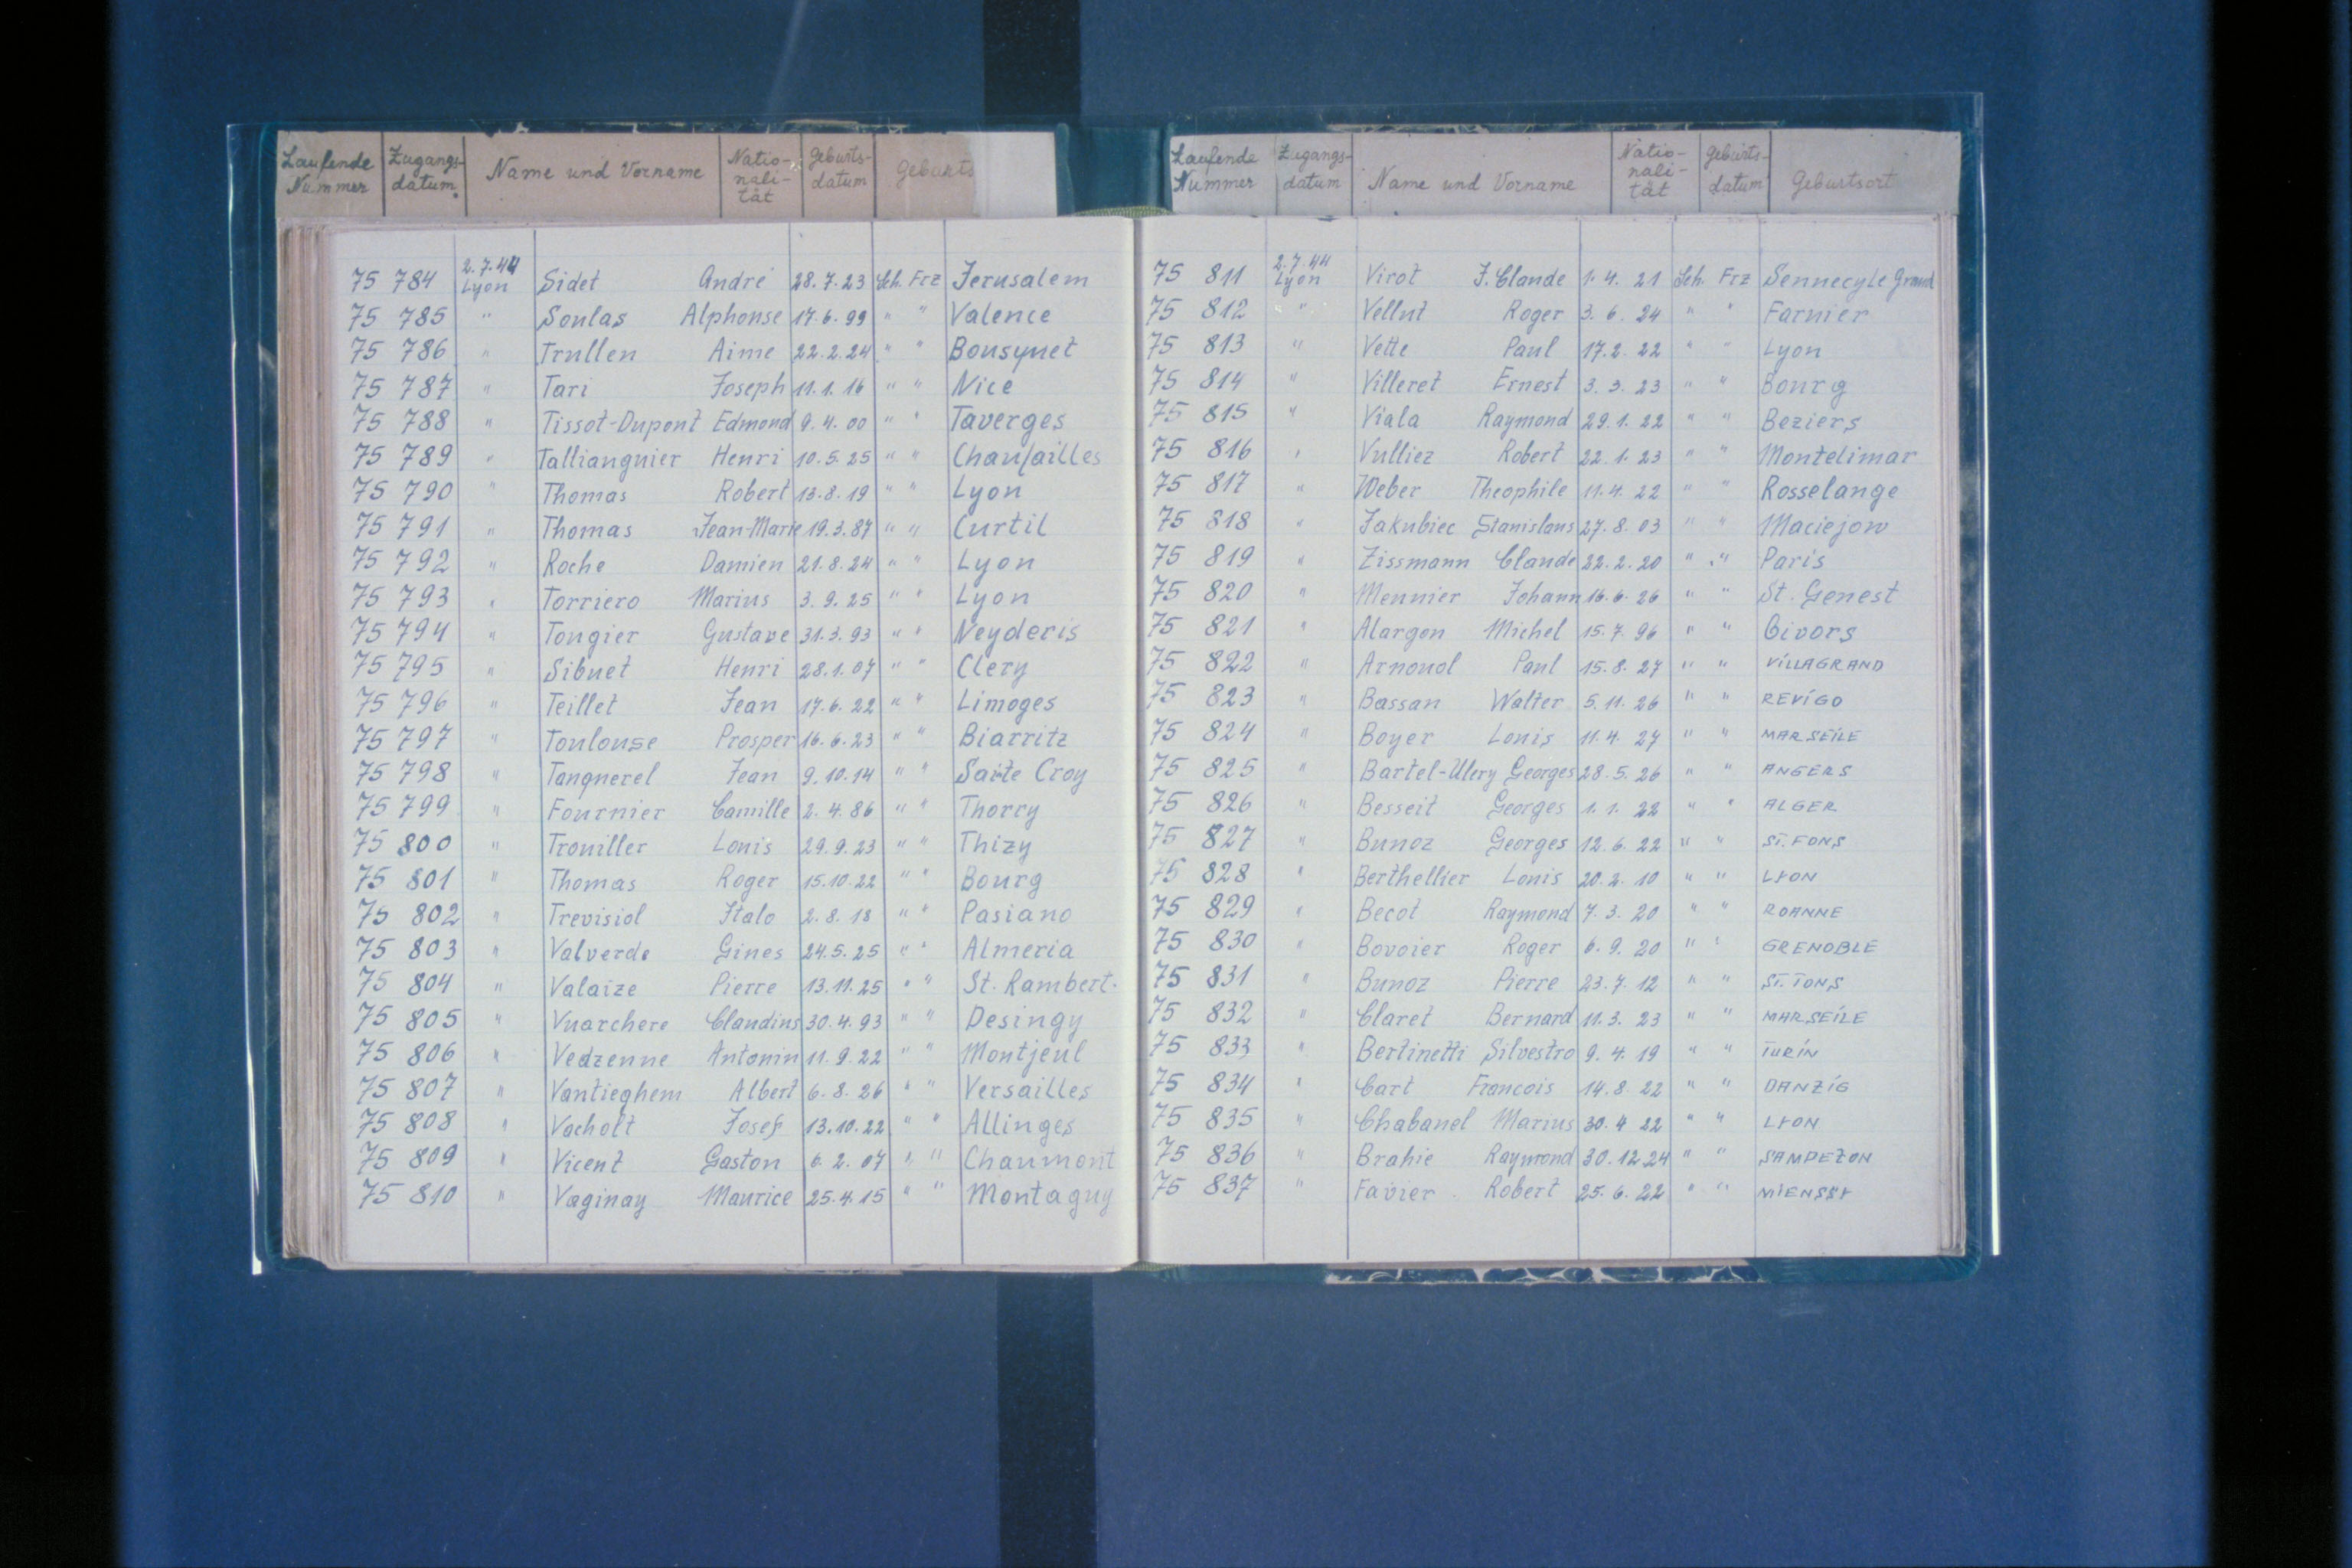 Laufende Nummer Zugangs-datum Name und Vorname Natio-nali-tät Geburts-datum Geburts
75 784 2.7.44 Lyon Sidet André 28.7.23 Sch. Frz Jerusalem
75 785 " Soulas Alphonse 17.6.99 " " Valence
75 786 " Trullen Aime 22.2.24 " " Bousynet
75 787 " Tari Joseph 11.1.16 " " Nice
75 788 " Tissot-Dupont Edmond 9.4.00 " " Taverges
75 789 " Talliangnier Henri 10.5.25 " " Chaufailles
75 790 " Thomas Robert 13.8.19 " " Lyon
75 791 " Thomas Jean-Marie 19.3.87 " " Curtil
75 792 " Roche Damien 21.8.24 " " Lyon
75 793 " Torriero Marius 3.9.25 " " Lyon
75 794 " Tongier Gustave 31.3.93 " " Neyderis
75 795 " Sibuet Henri 28.1.07 " " Clery
75 796 " Teillet Jean 17.6.22 " " Limoges
75 797 " Toulouse Prosper 16.6.23 " " Biarritz
75 798 " Tanqnerel Jean 9.10.14 " " Saite Croy
75 799 " Fournier Camille 2.4.86 " " Thorry
75 800 " Trouiller Louis 29.9.23 " " Thizy
75 801 " Thomas Roger 15.10.22 " " Bourg
75 802 " Trevisiol Italo 2.8.18 " " Pasiano
75 803 " Valverde Gines 24.5.25 " " Almeria
75 804 " Valaize Pierre 13.11.25 " " St. Rambert.
75 805 " Vuarchere Claudius 30.4.93 " " Desingy
75 806 " Vedzenne Antonin 11.9.22 " " Montjeul
75 807 " Vantieghem Albert 6.8.26 " " Versailles
75 808 " Vacholt Josef 13.10.22 " " Allinges
75 809 " Vicent Gaston 6.2.07 " " Chaumont
75 810 " Vaginay Maurice 25.4.15 " " Montaguy
Laufende Nummer Zugangs-datum Name und Vorname Natio-nali-tät Geburts-datum Geburtsort
75 811 2.7.44 Lyon Virot J. Claude 1.4.21 Sch. Frz Sennecyle Grand
75 812 " Vellut Roger 3.6.24 " " Farnier
75 813 " Vette Paul 17.2.22 " " Lyon
75 814 " Villeret Ernest 3.3.23 " " Bourg
75 815 " Viala Raymond 29.1.22 " " Beziers
75 816 " Vulliez Robert 22.1.23 " " Montelimar
75 817 " Weber Theophile 11.4.22 " " Rosselange
75 818 " Jakubiec Stanislaus 27.8.03 " " Maciejow
75 819 " Zissmann Claude 22.2.20 " " Paris
75 820 " Meunier Johann 16.6.26 " " St. Genest
75 821 " Alargon Michel 15.7.96 " " Givors
75 822 " Arnoud Paul 15.8.27 " " VILLAGRAND
75 823 " Bassan Walter 5.11.26 " " REVIGO
75 824 " Boyer Louis 11.4.27 " " MARSEILE
75 825 " Bartel-Ulery Georges 28.5.26 " " ANGERS
75 826 " Besseit Georges 1.1.22 " " ALGER
75 827 " Bunoz Georges 12.6.22 " " ST. FONS
75 828 " Berthellier Louis 20.2.10 " " LYON
75 829 " Becot Raymond 7.3.20 " " ROANNE
75 830 " Bovoier Roger 6.9.20 " " GRENOBLE
75 831 " Bunoz Pierre 23.7.12 " " ST. TONS
75 832 " Claret Bernard 11.3.23 " " MARSEILE
75 833 " Bertinetti Silvestro 9.4.19 " " TURIN
75 834 " Cart Francois 14.8.22 " " DANZIG
75 835 " Chabanel Marius 30.4 22 " " LYON
75 836 " Brahie Raymond 30.12.24 " " SAMPEZON
75 837 " Favier Robert 25.6.22 " " MIENSSY